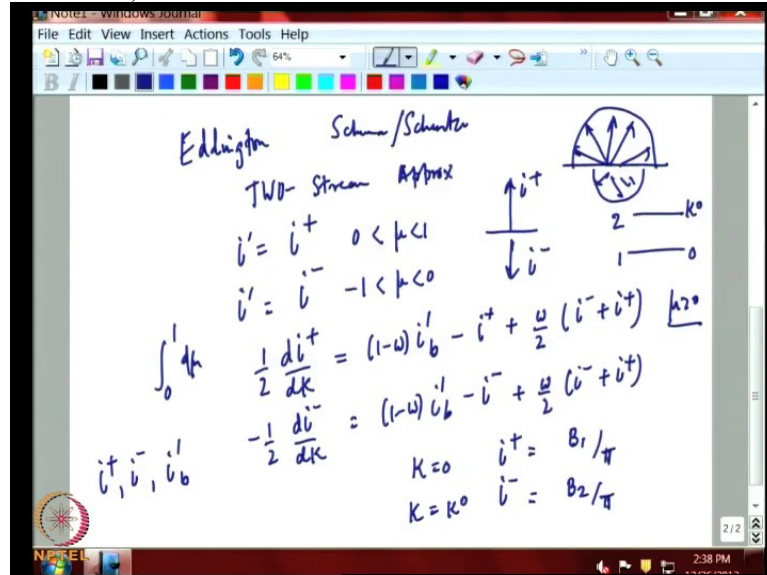 Note1 - Windows Journal
File Edit View Insert Actions Tools Help
64%
B I
Eddington
TWO- Stream Approx
i' = i⁺ 0 < μ < 1
i' = i⁻ -1 < μ < 0
i⁺
i⁻
2 K⁰
1 0
∫₀¹ dμ 1/2 di⁺/dK = (1-ω) i'b - i⁺ + ω/2 (i⁻ + i⁺) μ≥0
-1/2 di⁻/dK = (1-ω) i'b - i⁻ + ω/2 (i⁻ + i⁺)
i⁺, i⁻, i'b
K=0 i⁺ = B1/π
K = K⁰ i⁻ = B2/π
2/2
NPTEL
2:38 PM